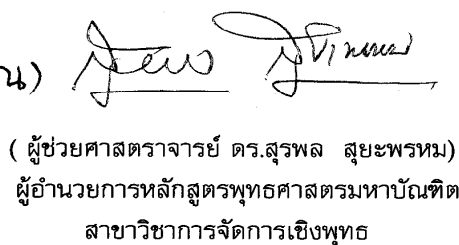 น)
( ผู้ช่วยศาสตราจารย์ ดร.สุรพล สุยะพรหม)
ผู้อำนวยการหลักสูตรพุทธศาสตรมหาบัณฑิต
สาขาวิชาการจัดการเชิงพุทธ